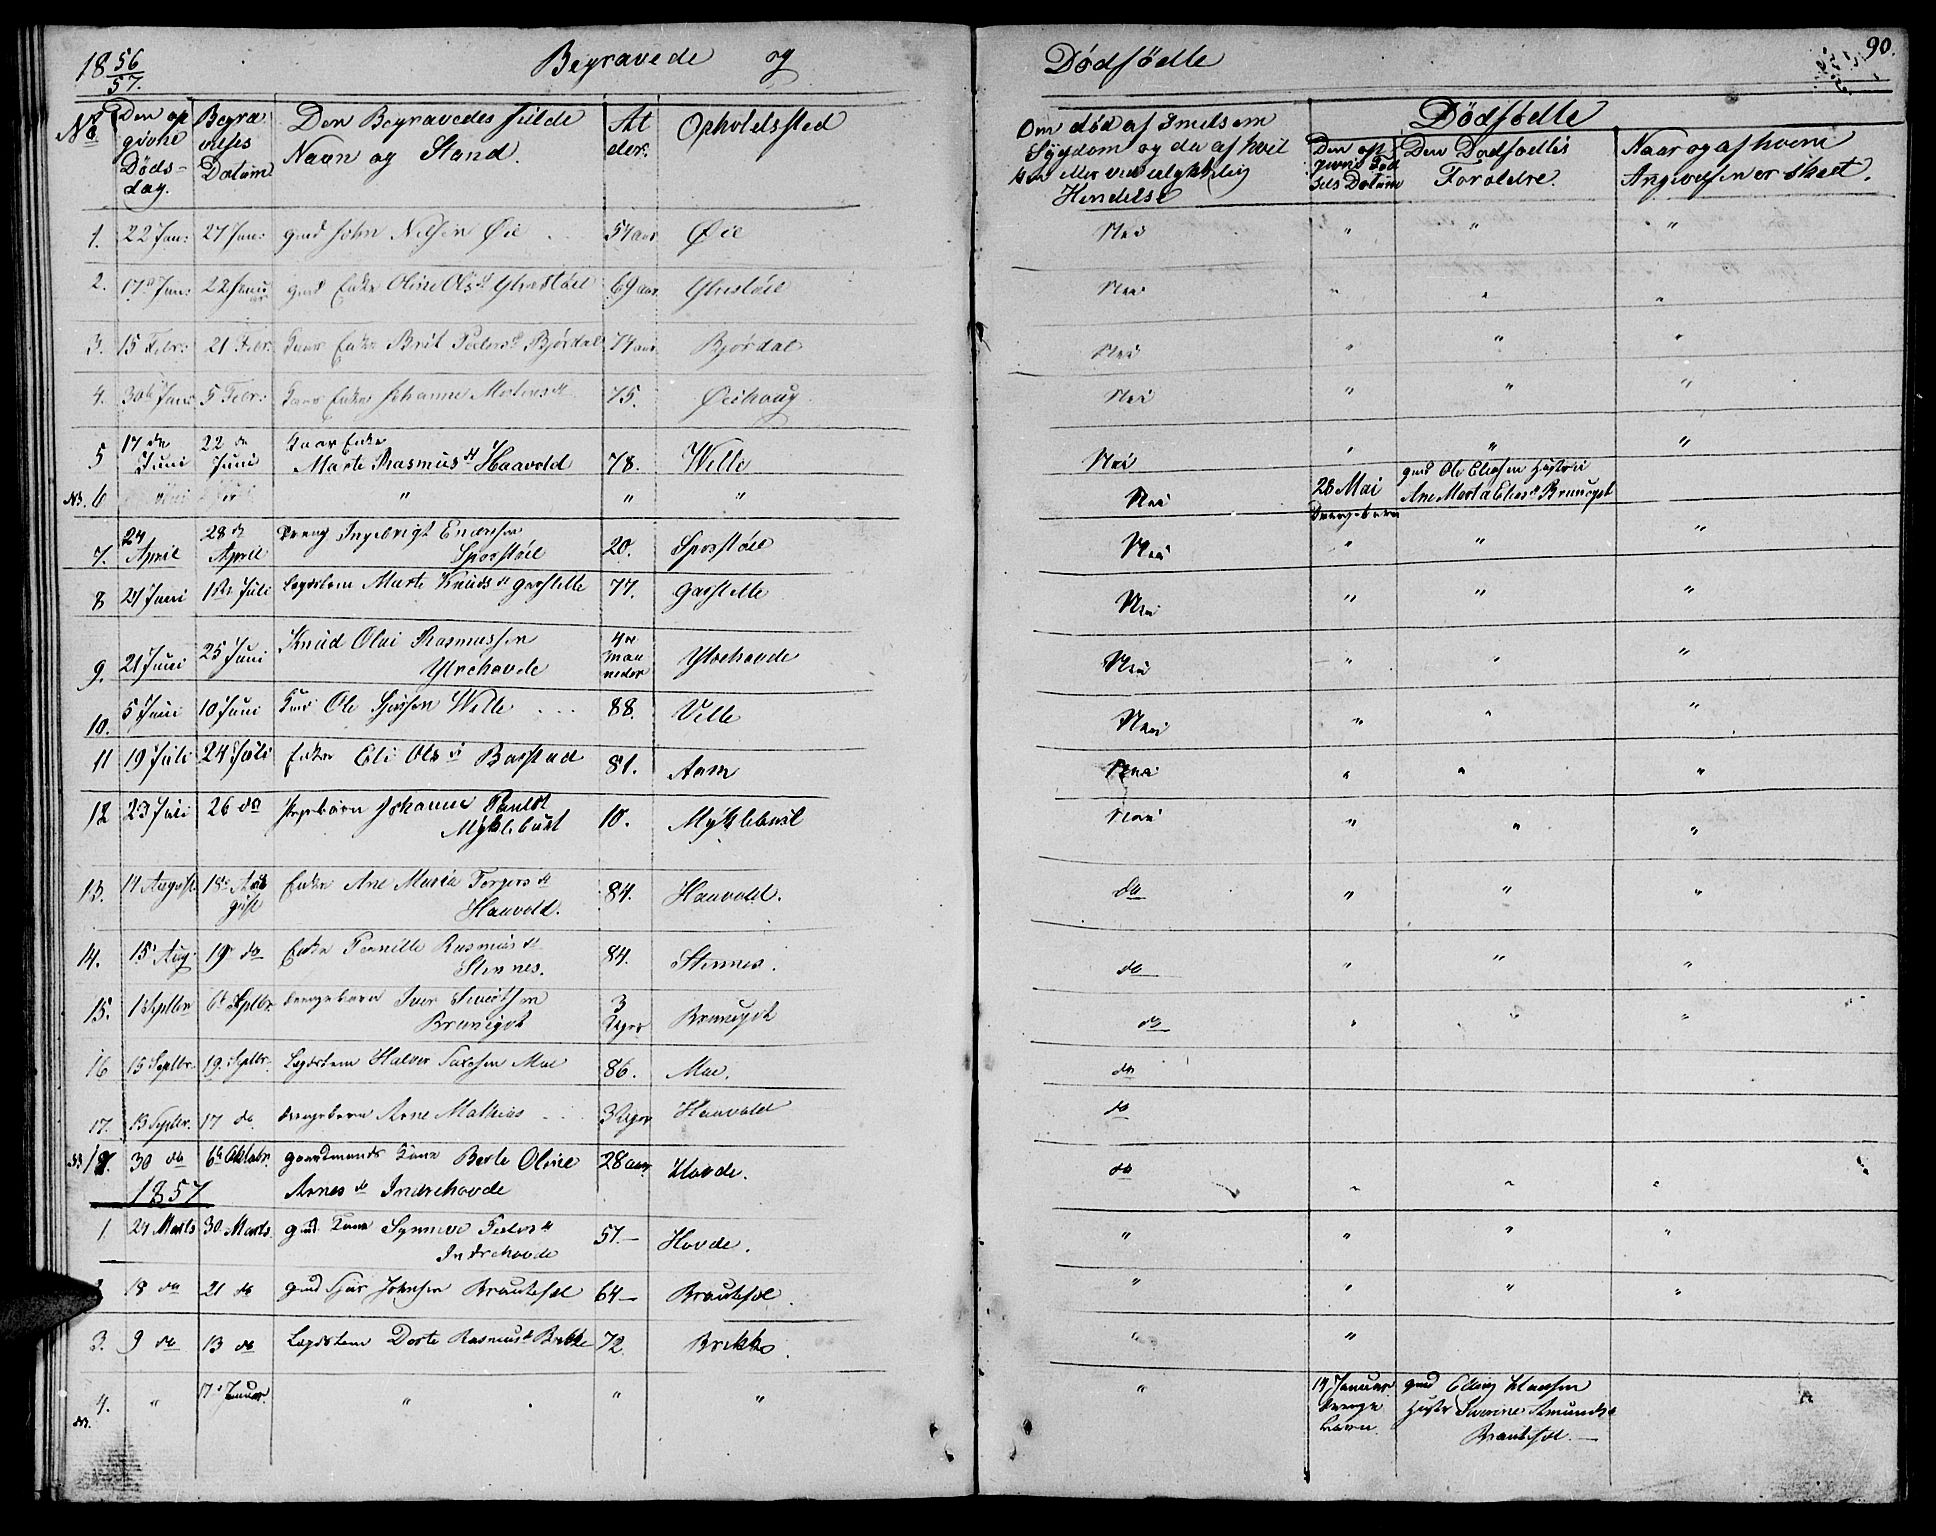 1856/57. Begravede og Dødfødte 90.
No Den opgivne Døds-dag. Begravelses Datum Den Begravedes fulde Navn og Stand. Alder. Opholdssted Om død af Smitsom Sygdom og da af hvilken eller ved ulykkelig Hendelse
Dødfødte
Den opgivne Fødsels Datum Den Dødfødtes Foreldre. Naar og af hvem Angivelsen er skeet.
1. 22 Jan: 27 Jan: gmd John Nilsen Øie 54 aar Øie Nei " " "
2. 17 Jan: 22 Januar gmd Enke Oline Olsd Ytrestøil 69 aar Ytrestøil Nei " " "
3. 15 Febr: 21 Febr. Enke Brit Pedersd Bjørdal 74 aar Bjørdal Nei " " "
4. 30te Jan: 5 Febr: Enke Johanne Mortensd 75. Øeihaug Nei " " "
5 17de Juni 22de Juni Enke
Marte Rasmusd Haavold 78. Welle Nei " " "
NB. 6 " " " Nei 28 Mai Drengebarn gmd Ole Eliasen Hustrue
Ane Marta Eliasd Bruneigot
7. 24 April 28de April Dreng Ingebrigt Endresen
Sporstøil 20. Sporstøil Nei " " "
8 24 Juni 1ste Juli Legdslem Marte Knudsd 77. Nei " " "
9. 21 Juni 25 Juni Knud Olai Rasmussen
Ytrehovde 4re maaneder Ytrehovde Nei " " "
10. 5 Juni 10 Juni Ole Welle 88. Velle Nei " " "
11 19 Juli 24 Juli Enke Eli Olsd Barstad 81. Aam Nei " " "
12 23 Juli 26 do Pigebarn Johanne Paulsd
Myklebust 10. Myklebust Nei " " "
13. 14 August 18de August Enke Ane Maria Torgersd
Haavold. 84. Haavold. do " " "
14. 15 Aug. 19de do Enke Pernille Rasmusd
Stennes. 84. Stennes. do " " "
15. 1 Septbr 6te Septbr. Drengebarn Iver Sivertsen
Bruneigot 3 Uger Bruneigot do " " "
16 15 Septbr. 19. Septbr. Legdslem Halvor Moe 86. Moe. do
17. 13 Septbr. 17 do Drengebarn Arne Mathias 3 Uger Haavold do
NB 18. 30 do 6te Oktobr. gaardmands Kone Berte Oline
Arnesd Indrehovde 28 aar Hovde. do " " "
1857
1. 24 Marts 30 Marts gmd Kone Synneve Pedersd
Indrehovde 57 — Hovde. " " " "
2. 18 do 21 do gmd Johnsen Brautesol 64 — Brautesol. " " " "
3. 9 do 13 do Legdslem Dorte Rasmusd Brekke 72 Brekke. " "
NB. 4. " 17de Januar. " " " " 14 Januar Drenge barn gmd Elling Hansen
Hustr Severine Amundsd
Brautesol. —